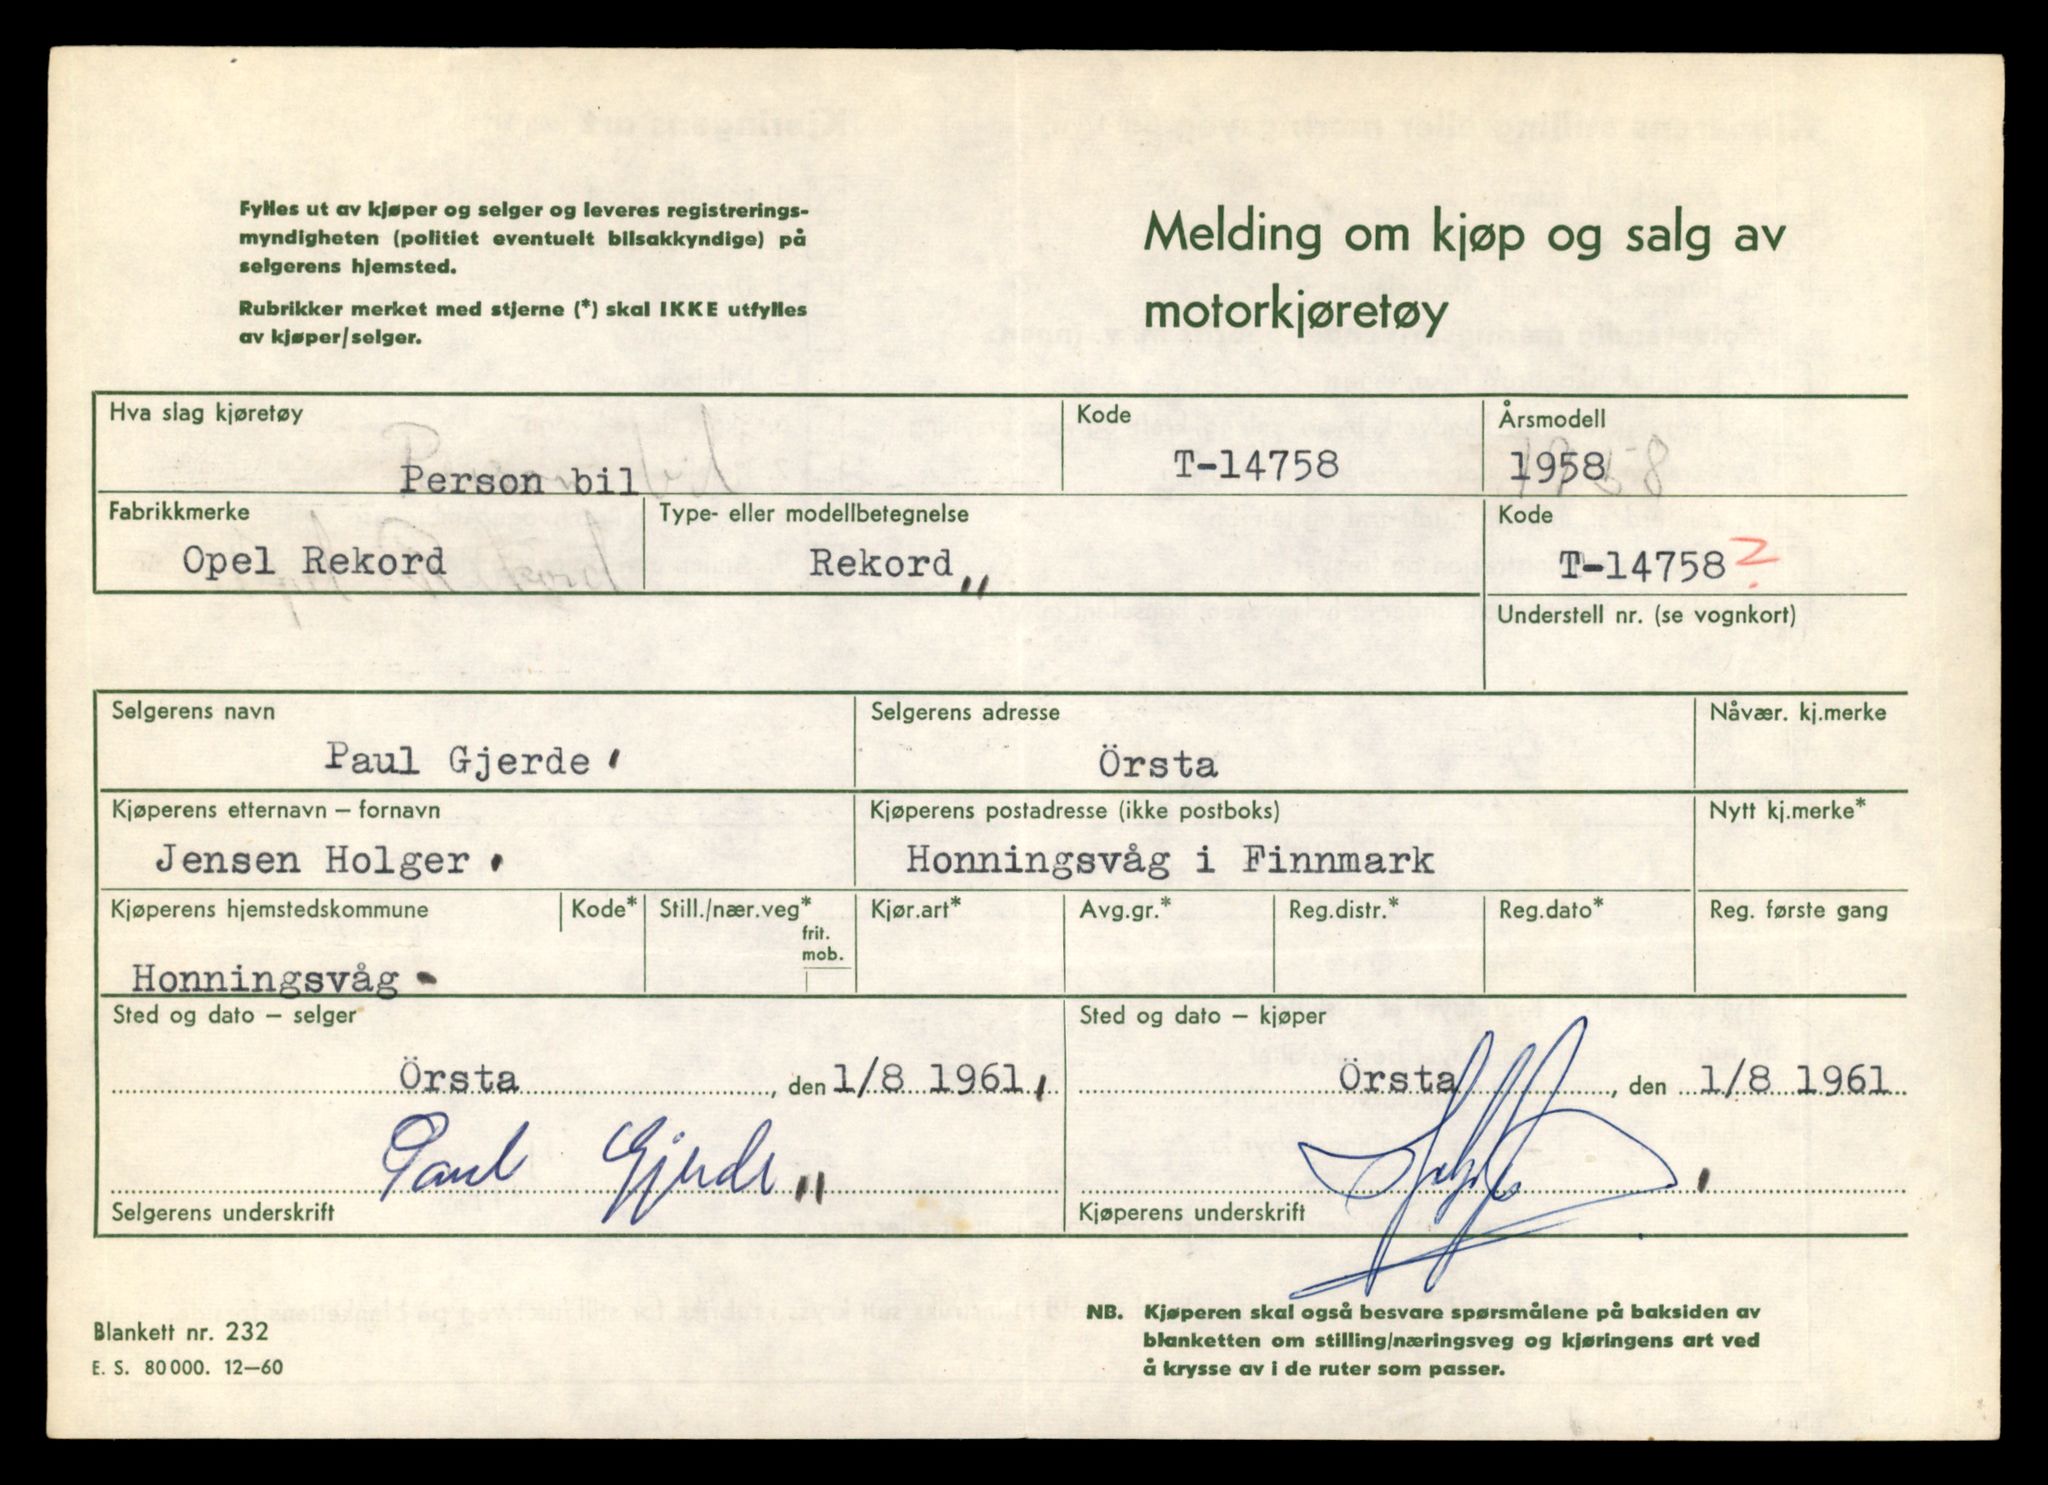 Fylles ut av kjøper og selger og leveres registrerings-
myndigheten (politiet eventuelt bilsakkyndige) på
selgerens hjemsted.
Rubrikker merket med stjerne (*) skal IKKE utfylles
av kjøper/selger.
Melding om kjøp og salg av
motorkjøretøy
Hva slag kjøretøy
Person bil
Kode
T-14758
Årsmodell
1958
Fabrikkmerke
Opel Rekord
Type- eller modellbetegnelse
Rekord "
Kode
T-14758 ?
Understell nr. (se vognkort)
Selgerens navn
Paul Gjerde
Selgerens adresse
Örsta
Nåvær. kj.merke
Kjøperens etternavn – fornavn
Jensen Holger
Kjøperens postadresse (ikke postboks)
Honningsvåg i Finnmark
Nytt kj.merke*
Kjøperens hjemstedskommune
Honningsvåg
Kode*
Still./nær.veg*
frit.
mob.
Kjør.art*
Avg.gr.*
Reg.distr.*
Reg.dato*
Reg. første gang
Sted og dato – selger
Örsta, den 1/8 1961
Paul Gjerde "
Selgerens underskrift
Sted og dato – kjøper
Örsta, den 1/8 1961
Kjøperens underskrift
Blankett nr. 232
E. S. 80 000. 12–60
NB. Kjøperen skal også besvare spørsmålene på baksiden av
blanketten om stilling/næringsveg og kjøringens art ved
å krysse av i de ruter som passer.